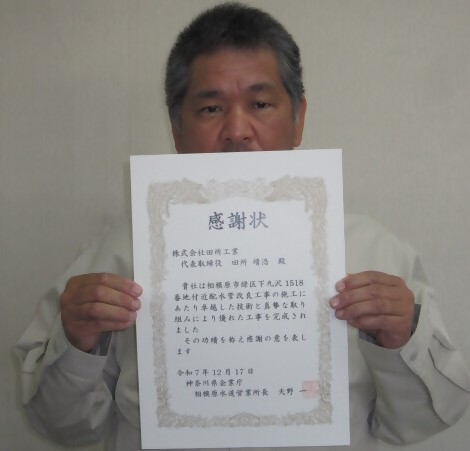 感謝状
株式会社田所工業
代表取締役 田所 靖浩 殿
貴社は相模原市緑区下九沢1518
番地付近配水管改良工事の施工に
あたり卓越した技術と真摯な取り
組みにより優れた工事を完成され
ました
その功績を称え感謝の意を表しま
す
令和7年12月17日
神奈川県企業庁
相模原水道営業所長 天野 一